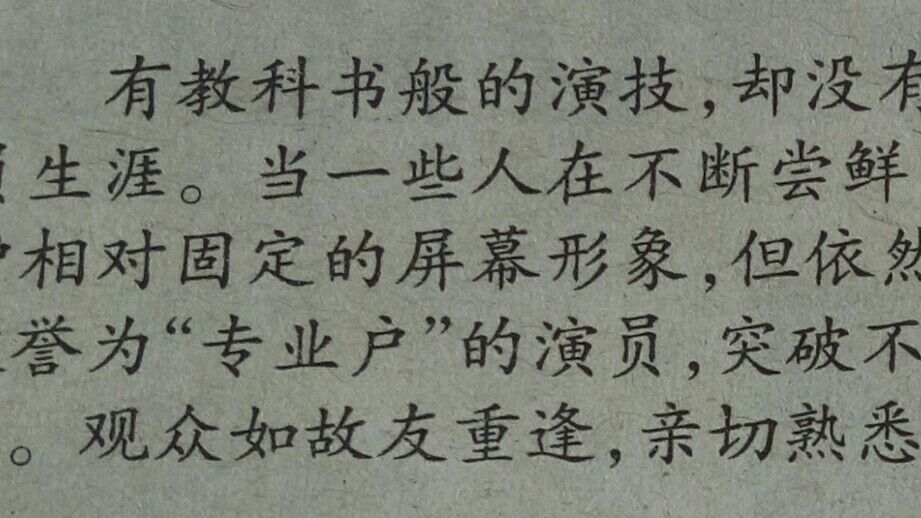 有教科书般的演技，却没有
生涯。当一些人在不断尝鲜
相对固定的屏幕形象，但依然
誉为“专业户”的演员，突破不
。观众如故友重逢，亲切熟悉